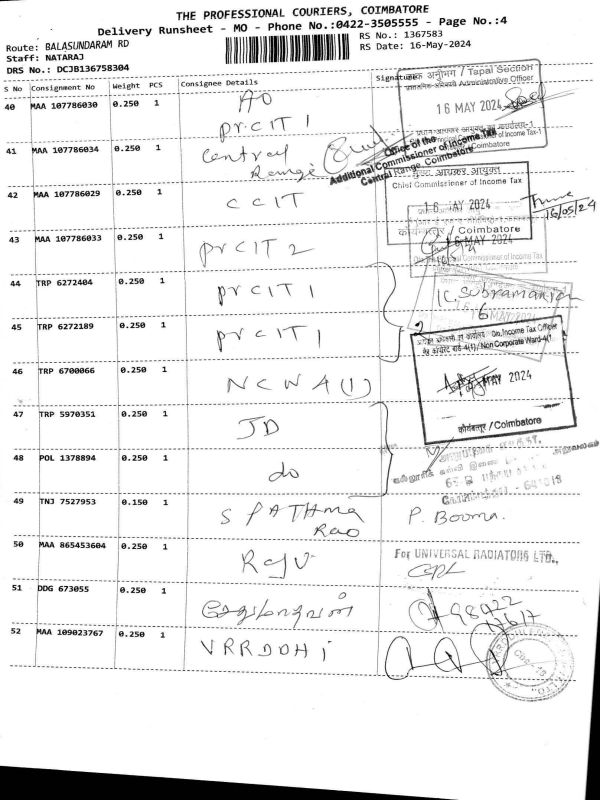 THE PROFESSIONAL COURIERS, COIMBATORE
Delivery Runsheet - MO - Phone No.:0422-3505555 - Page No.:4
Route: BALASUNDARAM RD
RS No.: 1367583
Staff: NATARAJ
RS Date: 16-May-2024
DRS No.: DCJB136758304
S No Consignment No Weight PCS Consignee Details Signature
40 MAA 107786030 0.250 1 AO
Pr.CIT 1
41 MAA 107786034 0.250 1 Central
Range
42 MAA 107786029 0.250 1 CCIT
43 MAA 107786033 0.250 1 PrCIT 2
44 TRP 6272404 0.250 1 PrCIT 1
45 TRP 6272189 0.250 1 PrCIT 1
46 TRP 6700066 0.250 1 NCW 4(1)
47 TRP 5970351 0.250 1 JD
48 POL 1378894 0.250 1 do
49 TNJ 7527953 0.150 1 S PATHma
Rao
50 MAA 865453604 0.250 1 Raju
51 DDG 673055 0.250 1
52 MAA 109023767 0.250 1 VRRDDHi
अनुभाग / Tapal Section
16 MAY 2024
Office of the
Additional Commissioner of Income Tax
Central Range, Coimbatore
मुख्य आयकर आयुक्त
Chief Commissioner of Income Tax
16 MAY 2024
16/05/24
कोयंबत्तूर / Coimbatore
16 MAY 2024
K. Subramanian
O/o. Income Tax Officer
Non Corporate Ward-4(1)
MAY 2024
कोयंबत्तूर / Coimbatore
P. Booma.
For UNIVERSAL RADIATORS LTD.,
98422